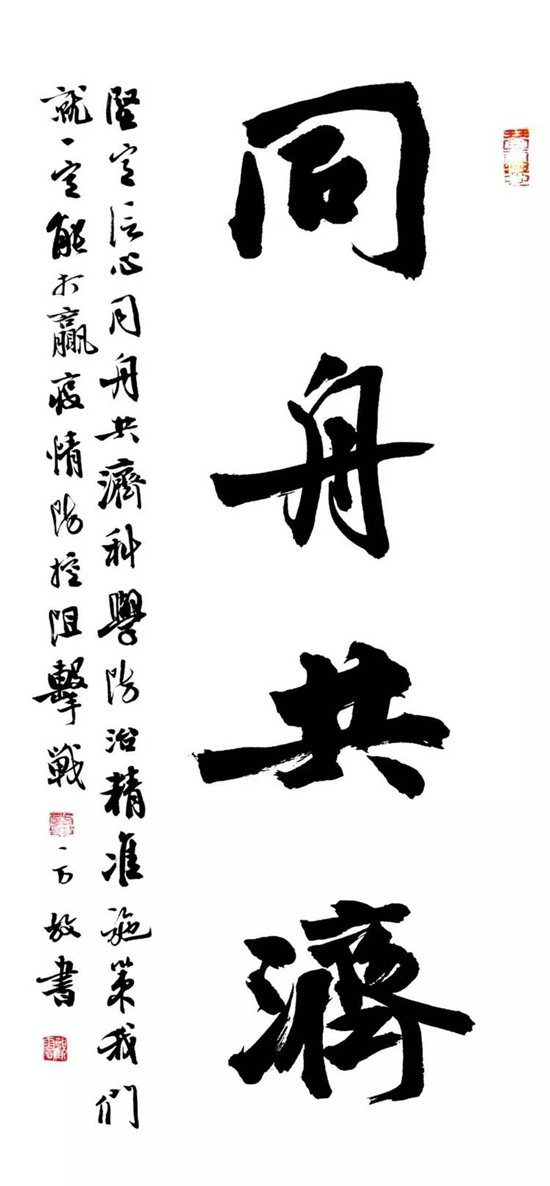 同舟共濟
堅定信心同舟共濟科學防治精准施策我們
就一定能打贏疫情防控阻擊戰
書